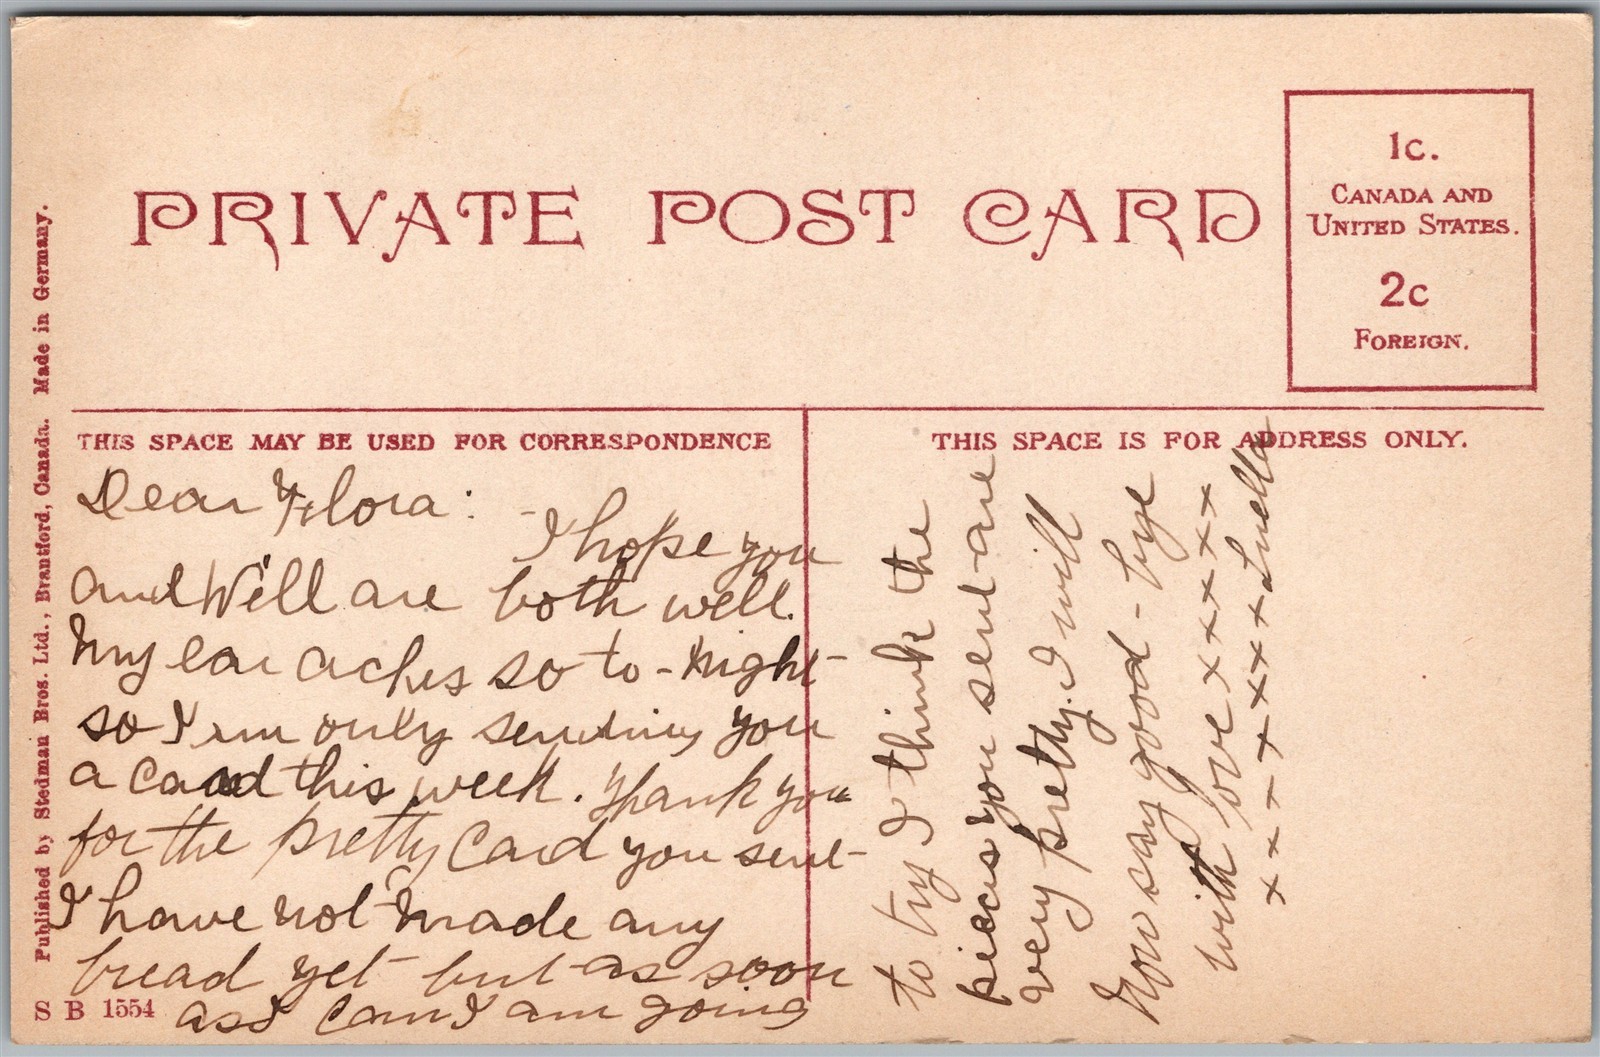 PRIVATE POST CARD
1c.
CANADA AND
UNITED STATES.
2c
FOREIGN.
Published by Stedman Bros. Ltd., Brantford, Canada. Made in Germany.
THIS SPACE MAY BE USED FOR CORRESPONDENCE
THIS SPACE IS FOR ADDRESS ONLY.
Dear Flora:-
I hope you
and Will are both well.
My ear aches so to-night
so I am only sending you
a card this week. Thank you
for the pretty card you sent
I have not made any
bread yet but as soon
as I can I am going
S B 1554
to try I think the
pieces you sent are
very pretty. I will
now say good-bye
with love x x x x x x
x x x x x x x Luella